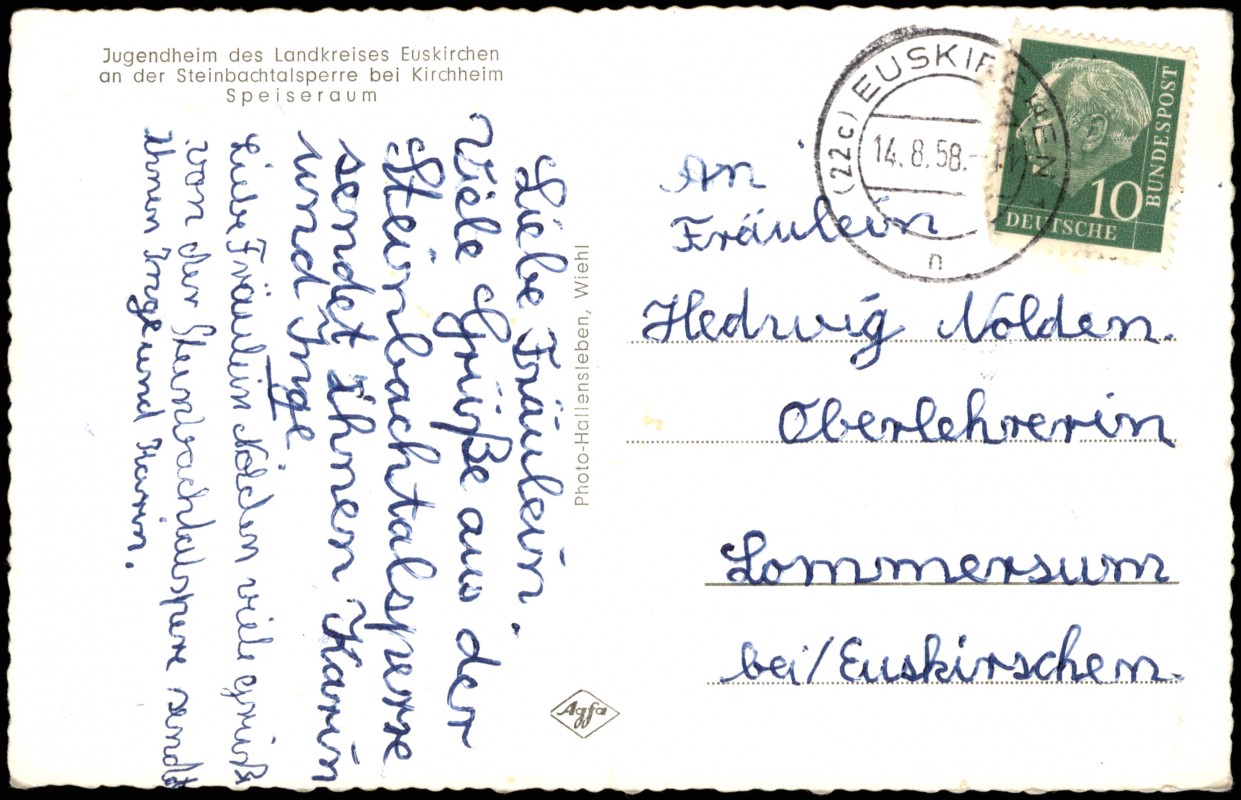 Jugendheim des Landkreises Euskirchen
an der Steinbachtalsperre bei Kirchheim
Speiseraum
Liebe Fräulein.
Viele Grüße aus der
Steinbachtalsperre
sendet ihnen Karin
und Inge.
Liebe Fräulein Nolden viele grüß
von der Steinbachtalsperre sendt
Ihnen Inge und Karin.
Photo-Hallensleben, Wiehl
Agfa
(22c) EUSKIRCHEN 1
14.8.58.
n
10
DEUTSCHE
BUNDESPOST
An
Fräulein
Hedwig Nolden.
Oberlehrerin
Lommersum
bei/Euskirschen.